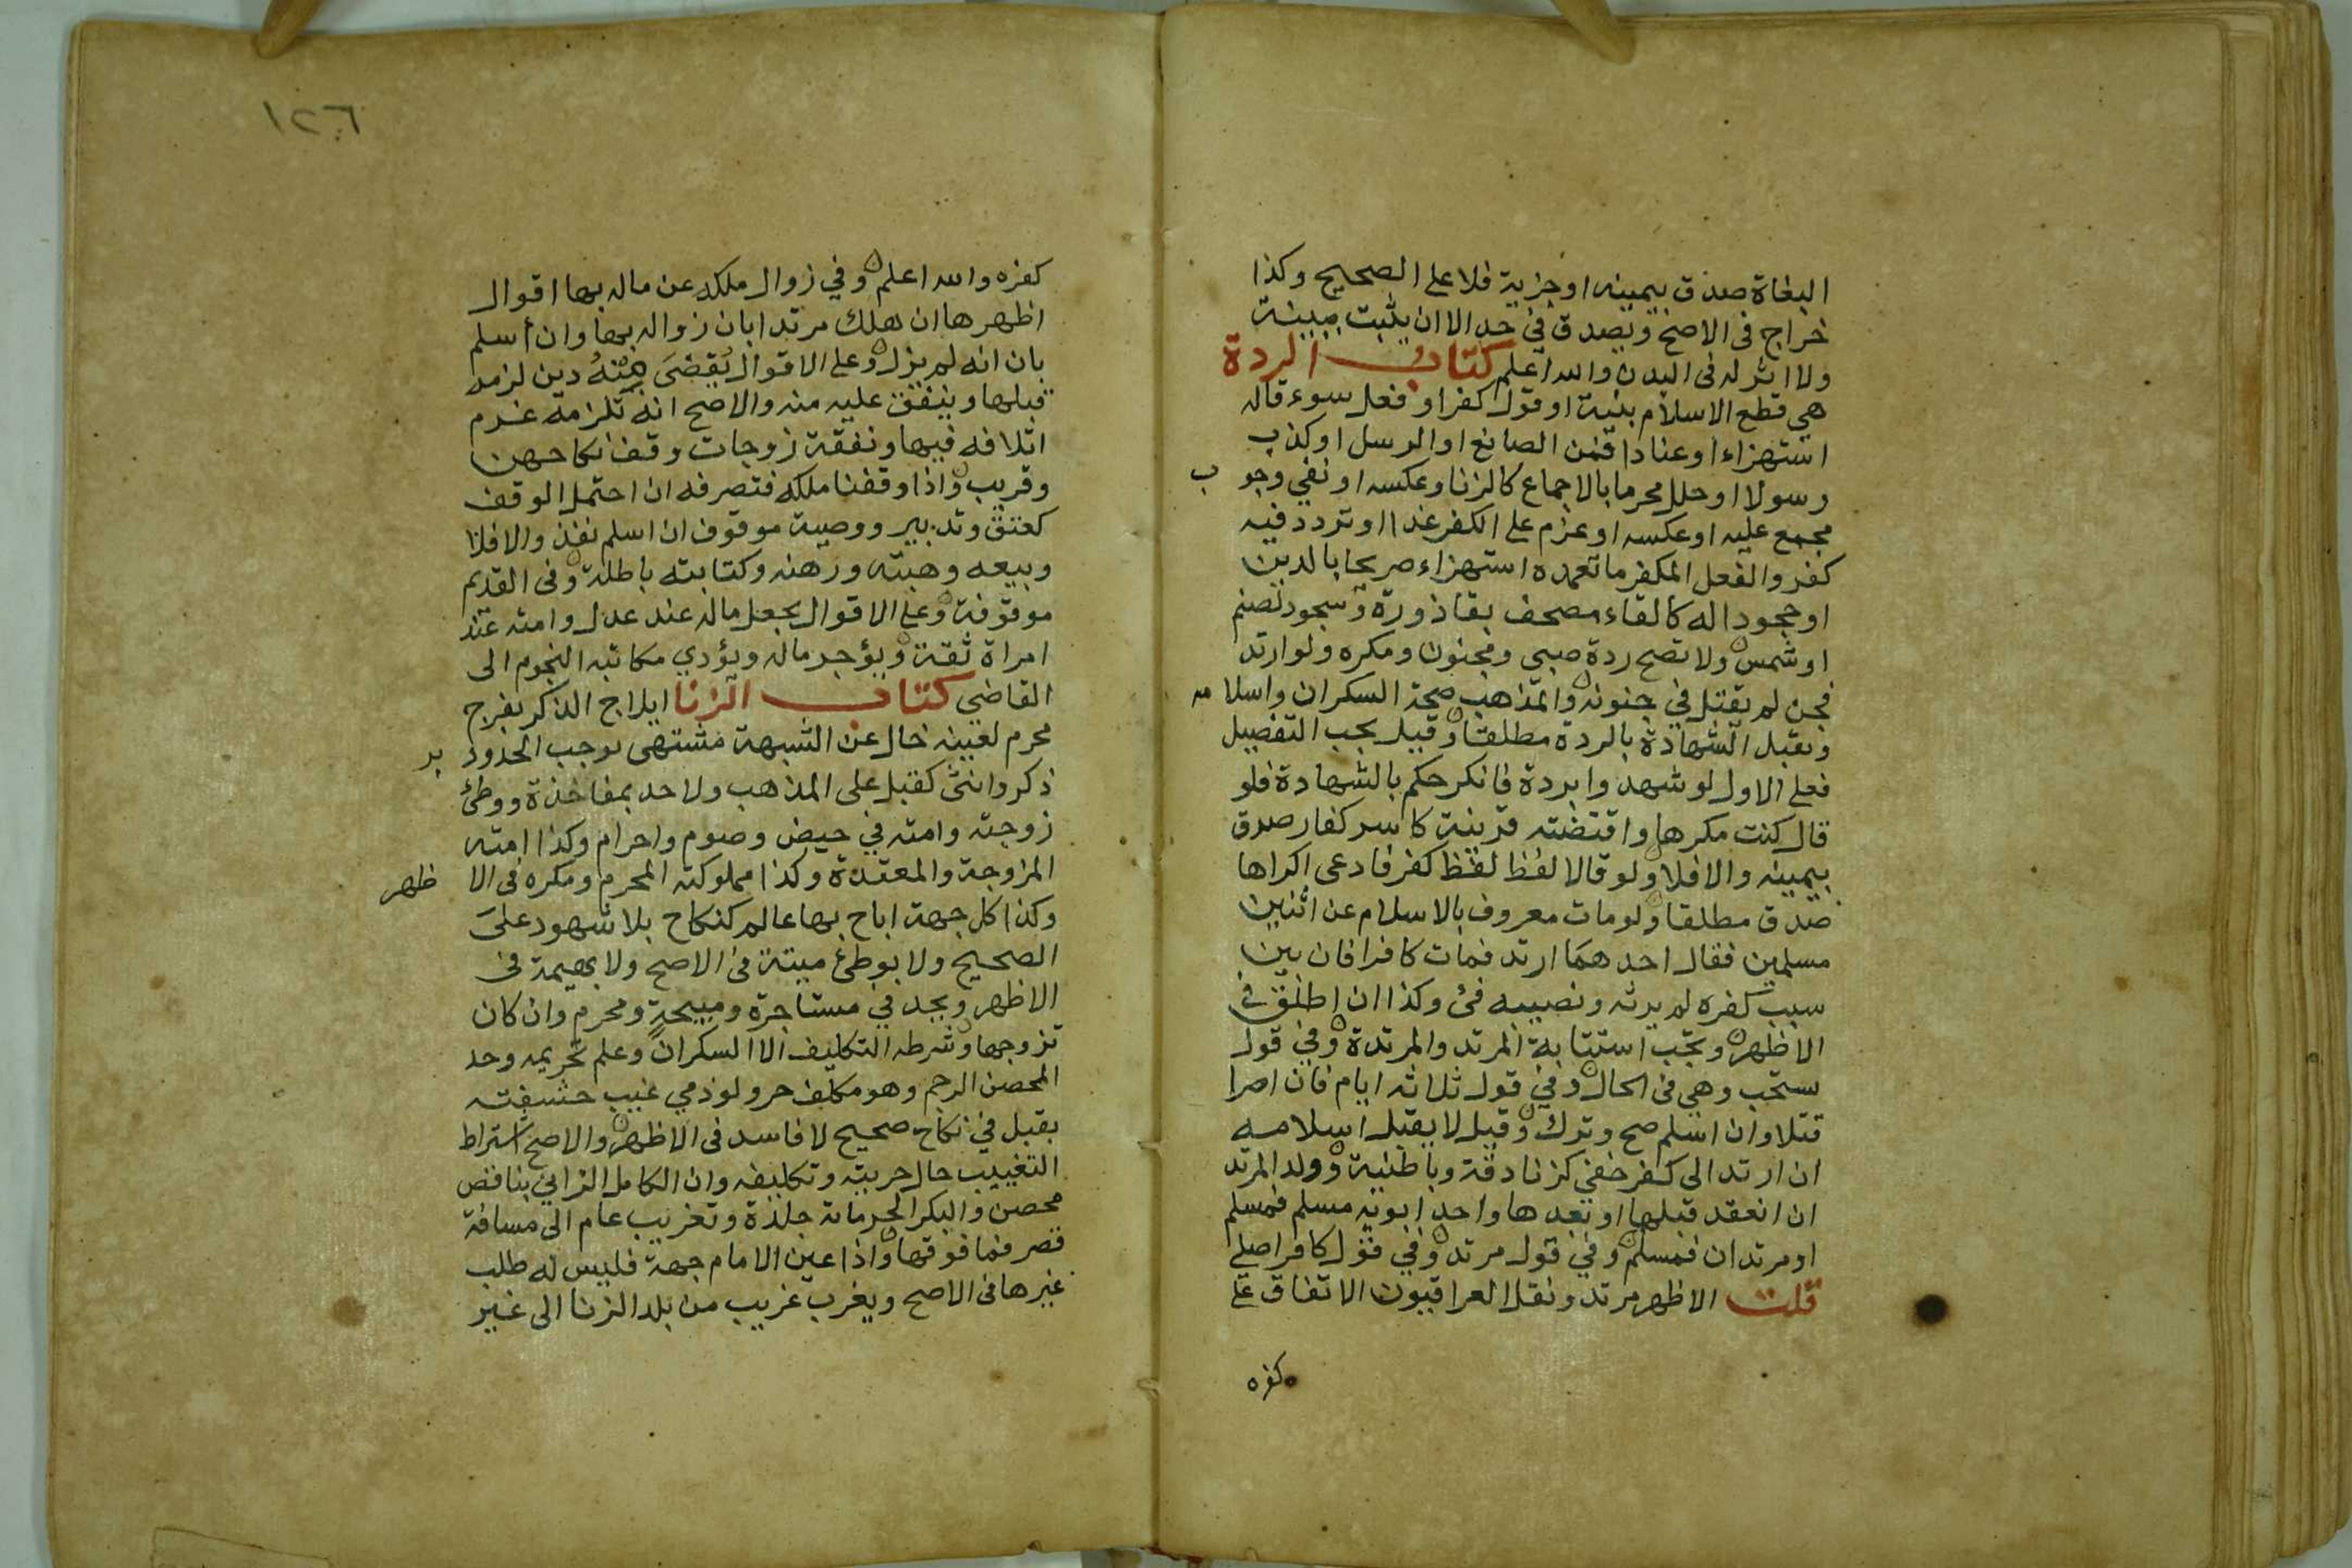 البغاة صدق بيمينه او جزية فلا على الصحيح وكذا
خراج فى الاصح ويصدق في حد الا ان يثبت ببينة
ولا اثر له فى البدن والله اعلم كتاب الردة
هي قطع الاسلام بنية او قول كفر او فعل سوء قاله
استهزاء او عنادا فمن الصانع او الرسل او كذب
رسولا او حلل محرما بالاجماع كالزنا وعكسه او نفي وجوب
مجمع عليه او عكسه او عزم على الكفر غدا او تردد فيه
كفر والفعل المكفر ما تعمده استهزاء صريحا بالدين
او جحودا له كالقاء مصحف بقاذورة وسجود لصنم
او شمس ولا تصح ردة صبي ومجنون ومكره ولو ارتد
فجن لم يقتل في جنونه والمذهب صحة السكران واسلامه
وتقبل الشهادة بالردة مطلقا وقيل يجب التفصيل
فعلى الاول لو شهدوا بردة فانكر حكم بالشهادة فلو
قال كنت مكرها واقتضته قرينة كاسر كفار صدق
بيمينه والا فلا ولو قالا لفظ لفظ كفر فادعى اكراها
صدق مطلقا ولو مات معروف بالاسلام عن اثنين
مسلمين فقال احدهما ارتد فمات كافرا فان بين
سبب كفره لم يرثه ونصيبه فئ وكذا ان اطلق في
الاظهر وتجب استتابة المرتد والمرتدة وفي قول
ستحب وهي فى الحال وفي قول ثلاثة ايام فان اصرا
قتلا وان اسلم صح وترك وقيل لا يقبل اسلامه
ان ارتد الى كفر خفي كزنادقة وباطنية وولد المرتد
ان انعقد قبلها او بعدها واحد ابويه مسلم فمسلم
او مرتدان فمسلم وفي قول مرتد وفي قول كافر اصلي
قلت الاظهر مرتد ونقل العراقيون الاتفاق على
كفره
١٢٦
كفره والله اعلم وفي زوال ملكه عن ماله بها اقوال
اظهرها ان هلك مرتدا بان زواله بها وان أسلم
بان انه لم يزل وعلى الاقوال يُقضَى مِنْهُ دين لزمه
قبلها وينفق عليه منه والاصح انه تلزمه غرم
اتلافه فيها ونفقة زوجات وقف نكاحهن
وقريب واذا وقفنا ملكه فتصرفه ان احتمل الوقف
كعتق وتدبير ووصية موقوف ان اسلم نفذ والا فلا
وبيعه وهبته ورهنه وكتابته باطلة وفى القديم
موقوفة وعلى الاقوال يجعل ماله عند عدل وامته عند
امراة ثقة ويؤجر ماله ويؤدي مكاتبه النجوم الى
القاضي كتاب الزنا ايلاج الذكر بفرج
محرم لعينه خال عن الشبهة مشتهى يوجب الحد ودبر
ذكر وانثى كقبل على المذهب ولا حد بمفاخذة ووطئ
زوجته وامته في حيض وصوم واحرام وكذا امته
المزوجة والمعتدة وكذا مملوكته المحرم ومكره فى الاظهر
وكذا كل جهة اباح بها عالم كنكاح بلا شهود علىَ
الصحيح ولا بوطئ ميتة فى الاصح ولا بهيمة فى
الاظهر ويحد في مستاجرة ومبيحةٍ ومحرم وان كان
تزوجها وشرطه التكليف الا السكران وعلم تحريمه وحد
المحصن الرجم وهو مكلف حر ولو ذمي غيب حشفته
بقبل في نكاح صحيح لا فاسد فى الاظهر والاصح اشتراط
التغييب حال حريته وتكليفه وان الكامل الزاني بناقص
محصن والبكر الحر مائة جلدة وتغريب عام الى مسافة
قصر فما فوقها واذا عين الامام جهة فليس له طلب
غيرها فى الاصح ويغرب غريب من بلد الزنا الى غير